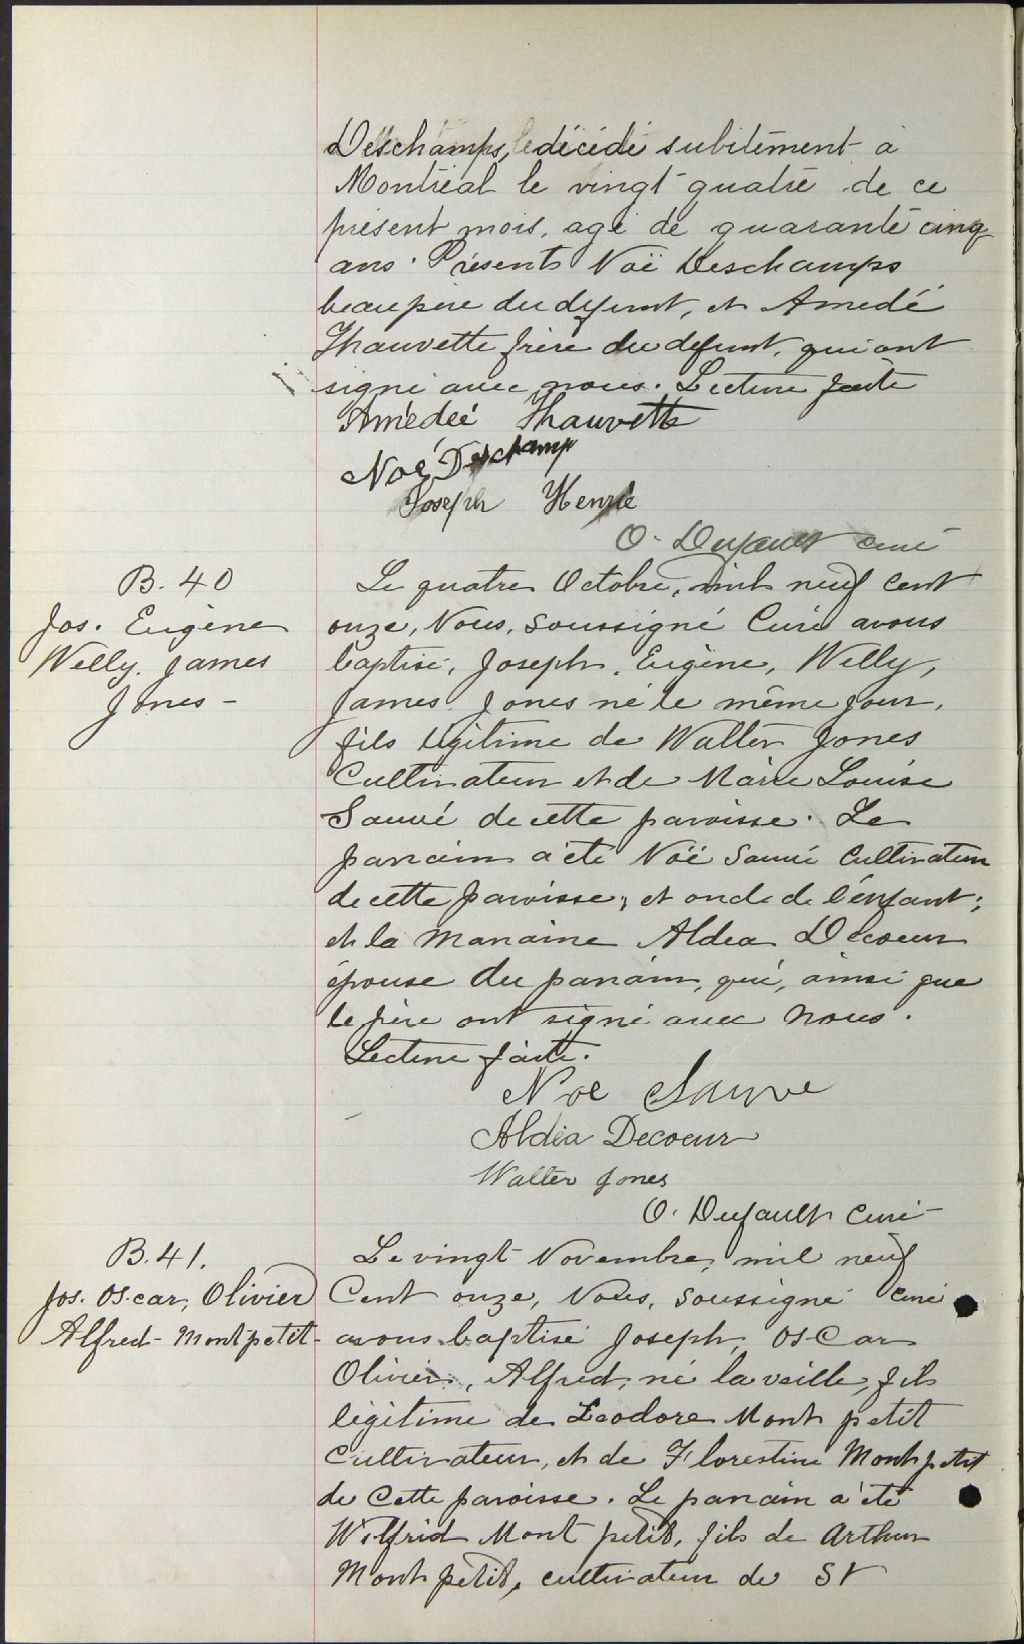 Deschamps, décédé subitement à
Montréal le vingt quatre de ce
présent mois, agé de quarante cinq
ans. Présents Noë Deschamps
beau père du defunt, et Amedé
Thauvette frère du defunt, qui ont
signé avec nous. Lecture faite
Amédée Thauvette
Noé Deschamp
Joseph Henrie
O. Dufault curé
B. 40
Jos. Eugène
Welly. James
Jones -
Le quatre Octobre, mil neuf cent
onze, Nous, soussigné Curé avons
baptisé, Joseph, Eugène, Welly,
James Jones né le même jour,
fils légitime de Walter Jones
Cultivateur et de Marie Louise
Sauvé de cette paroisse. Le
parrain a été Noë Sauvé Cultivateur
de cette paroisse, et oncle de l'enfant;
et la marraine Aldea Decoeur
épouse du parrain, qui, ainsi que
le père ont signé avec nous.
Lecture faite.
Noe Sauve
Aldéa Decoeur
Walter Jones
O. Dufault Curé
B. 41.
Jos. Oscar, Olivier
Alfred - Montpetit -
Le vingt Novembre, mil neuf
Cent onze, Nous, soussigné Curé
avons baptisé Joseph, Oscar
Olivier, Alfred, né la veille, fils
légitime de Leodore Mont petit
Cultivateur, et de Florestine Montpetit
de Cette paroisse. Le parrain a été
Wilfrid Mont petit, fils de Arthur
Mont petit, cultivateur de St